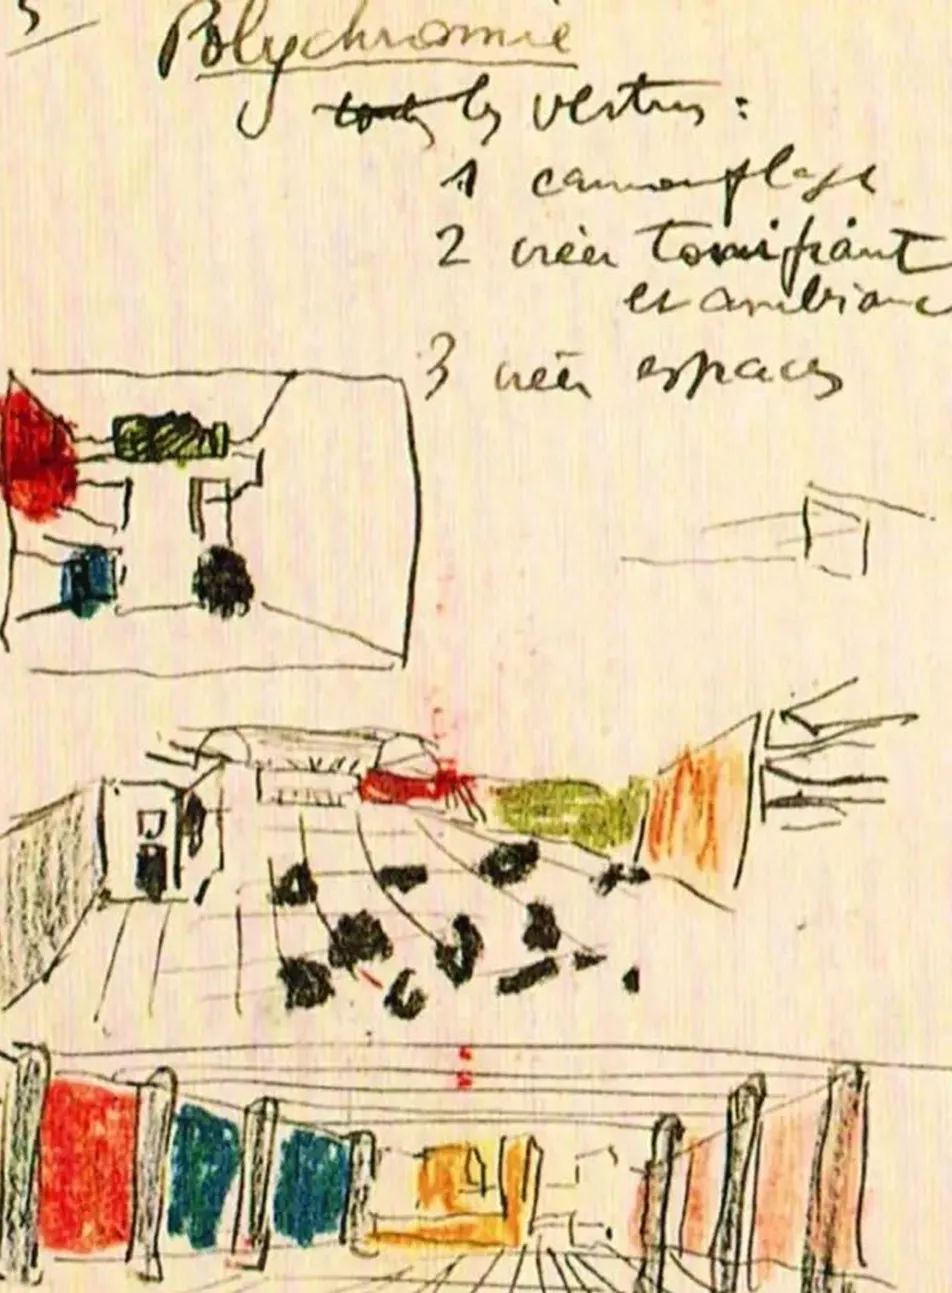 Polychromie
les vertus :
1 camouflage
2 créer tonifiant
et ambianc
3 créer espaces